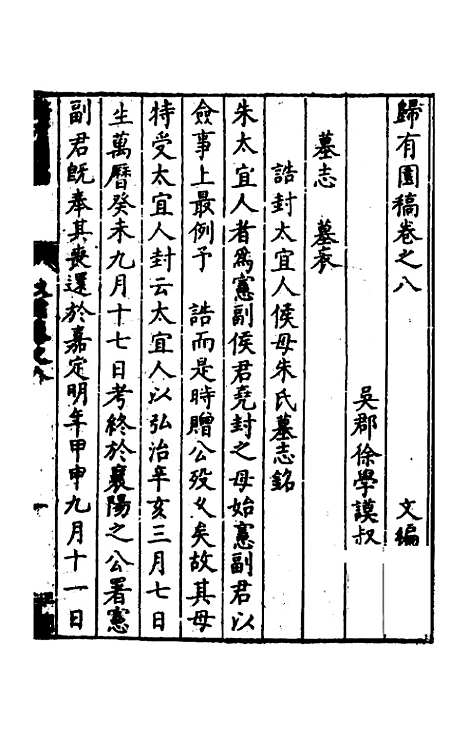 歸有園稿卷之八　文編
吳郡徐學謨叔
墓志　墓表
誥封太宜人侯母朱氏墓志銘
朱太宜人者爲憲副侯君堯封之母始憲副君以
僉事上最例予　誥而是時贈公歿久矣故其母
特受太宜人封云太宜人以弘治辛亥三月七日
生萬曆癸未九月十七日考終於襄陽之公署憲
副君旣奉其喪還於嘉定明年甲申九月十一日